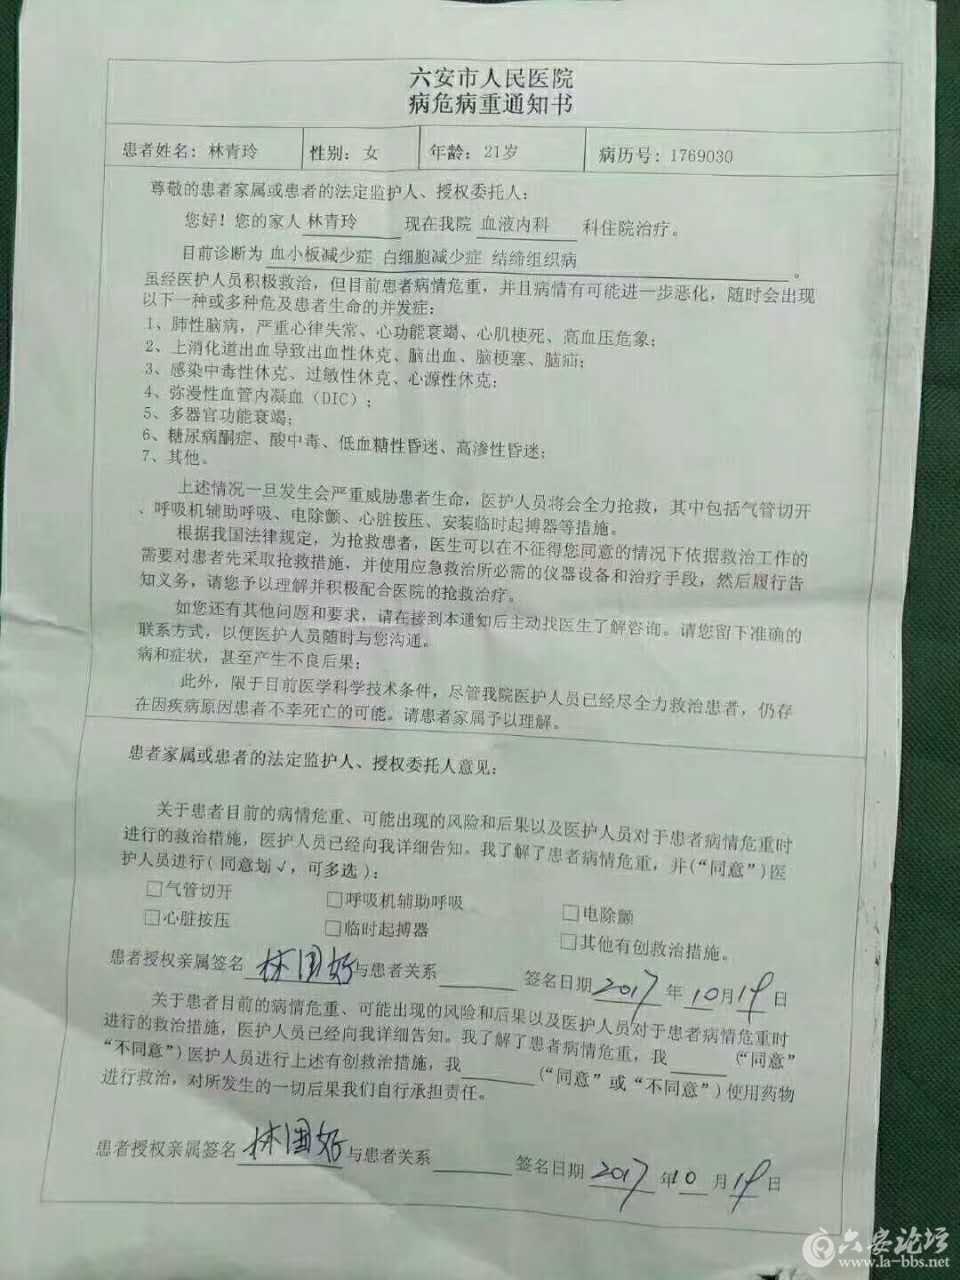 六安市人民医院
病危病重通知书
患者姓名：林青玲 性别：女 年龄：21岁 病历号：1769030
尊敬的患者家属或患者的法定监护人、授权委托人：
您好！您的家人 林青玲 现在我院 血液内科 科住院治疗。
目前诊断为 血小板减少症 白细胞减少症 结缔组织病 。
虽经医护人员积极救治，但目前患者病情危重，并且病情有可能进一步恶化，随时会出现
以下一种或多种危及患者生命的并发症：
1、肺性脑病，严重心律失常、心功能衰竭、心肌梗死、高血压危象；
2、上消化道出血导致出血性休克、脑出血、脑梗塞、脑疝；
3、感染中毒性休克、过敏性休克、心源性休克；
4、弥漫性血管内凝血（DIC）；
5、多器官功能衰竭；
6、糖尿病酮症、酸中毒、低血糖性昏迷、高渗性昏迷；
7、其他。
上述情况一旦发生会严重威胁患者生命，医护人员将会全力抢救，其中包括气管切开
、呼吸机辅助呼吸、电除颤、心脏按压、安装临时起搏器等措施。
根据我国法律规定，为抢救患者，医生可以在不征得您同意的情况下依据救治工作的
需要对患者先采取抢救措施，并使用应急救治所必需的仪器设备和治疗手段，然后履行告
知义务，请您予以理解并积极配合医院的抢救治疗。
如您还有其他问题和要求，请在接到本通知后主动找医生了解咨询。请您留下准确的
联系方式，以便医护人员随时与您沟通。
病和症状，甚至产生不良后果；
此外，限于目前医学科学技术条件，尽管我院医护人员已经尽全力救治患者，仍存
在因疾病原因患者不幸死亡的可能。请患者家属予以理解。
患者家属或患者的法定监护人、授权委托人意见：
关于患者目前的病情危重、可能出现的风险和后果以及医护人员对于患者病情危重时
进行的救治措施，医护人员已经向我详细告知。我了解了患者病情危重，并(“同意”)医
护人员进行( 同意划√，可多选 )：
□气管切开 □呼吸机辅助呼吸 □电除颤
□心脏按压 □临时起搏器 □其他有创救治措施。
患者授权亲属签名 林国好 与患者关系 签名日期 2017 年 10 月 19 日
关于患者目前的病情危重、可能出现的风险和后果以及医护人员对于患者病情危重时
进行的救治措施，医护人员已经向我详细告知。我了解了患者病情危重，我 (“同意”
“不同意”)医护人员进行上述有创救治措施，我 (“同意”或“不同意”)使用药物
进行救治，对所发生的一切后果我们自行承担责任。
患者授权亲属签名 林国好 与患者关系 签名日期 2017 年 10 月 19 日
六安论坛
www.la-bbs.net